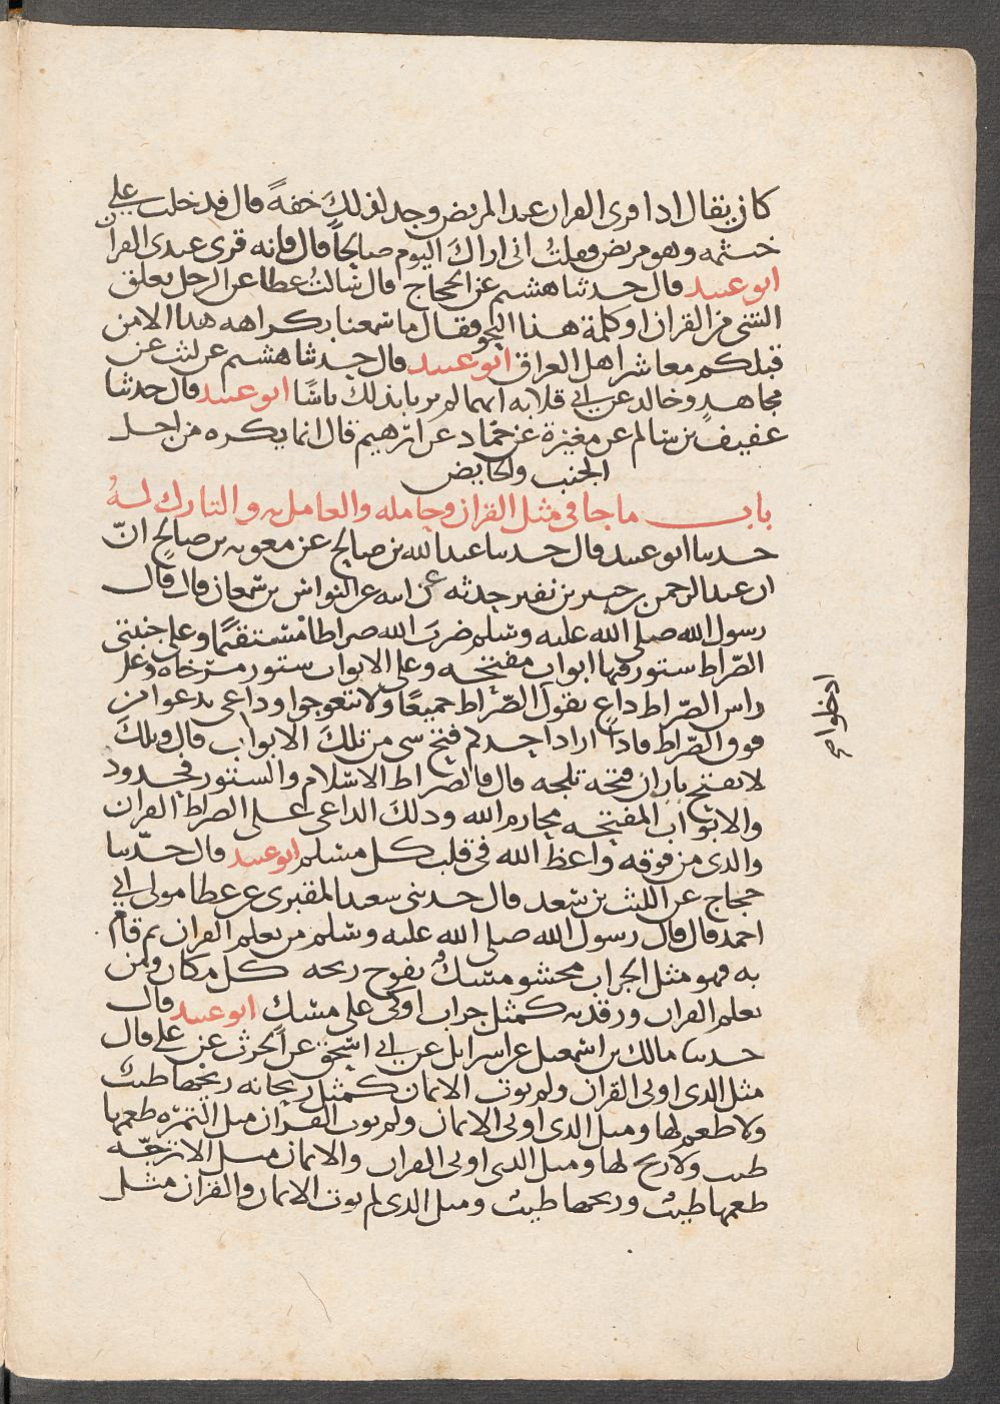 كان يقال اذا قرئ القران عند المريض وجد لذلك خفة قال فدخلت على
خيثمه وهو مريض فقلت انى اراك اليوم صالحا قال فانه قرئ عندى القران
ابو عبيد قال حدثنا هشيم عن الحجاج قال سالت عطا عن الرجل يعلق
الشى من القران او كلمة هذا النحو فقال ما سمعنا بكراهه هذا الا من
قبلكم معاشر اهل العراق ابو عبيد قال حدثنا هشيم عن ليث عن
مجاهد وخالد عن ابى قلابه انهما لم يريا بذلك باسا ابو عبيد قال حدثنا
عفيف بن سالم عن مغيرة عن حماد عن ابرهيم قال انما يكره من اجل
الجنب والحايض
باب ما جا فى مثل القران وحامله والعامل به والتارك له
حدثنا ابو عبيد قال حدثنا عبد الله بن صالح عن معويه بن صالح ان
ان عبد الرحمن بن جبير بن نفير حدثه عن ابيه عن النواس بن سمعان قال قال
رسول الله صلى الله عليه وسلم ضرب الله صراطا مستقيما وعلى جنبتى
الصراط ستور فيها ابواب مفتحه وعلى الابواب ستور مرخاه وعلى
راس الصراط داع يقول الصراط جميعا ولا تتعوجوا وداعى يدعوا من
فوق الصراط فاذا اراد احدكم فتح شى من تلك الابواب قال ويلك
لا تفتح بان ان فتحته تلجه قال فالصراط الاسلام والستور حدود
والابواب المفتحه محارم الله وذلك الداعى على الصراط القران
والذى من فوقه واعظ الله فى قلب كل مسلم ابو عبيد قال حدثنا
حجاج عن الليث بن سعد قال حدثنى سعيد المقبرى عن عطا مولى ابى
احمد قال قال رسول الله صلى الله عليه وسلم من تعلم القران ثم قام
به فهو مثل الجراب محشو مسك يفوح ريحه كل مكان ومن
تعلم القران ورقد به كمثل جراب اوكى على مسك ابو عبيد قال
حدثنا مالك بن اسمعيل عن اسرايل عن ابى اسحق عن الحرث عن على قال
مثل الذى اوتى القران ولم يوت الايمان كمثل ريحانه ريحها طيب
ولا طعم لها ومثل الذى اوتى الايمان ولم يوت القران مثل التمره طعمها
طيب ولا ريح لها ومثل الذى اوتى القران والايمان مثل الاترجه
طعمها طيب وريحها طيب ومثل الذى لم يوت الايمان والقران مثل